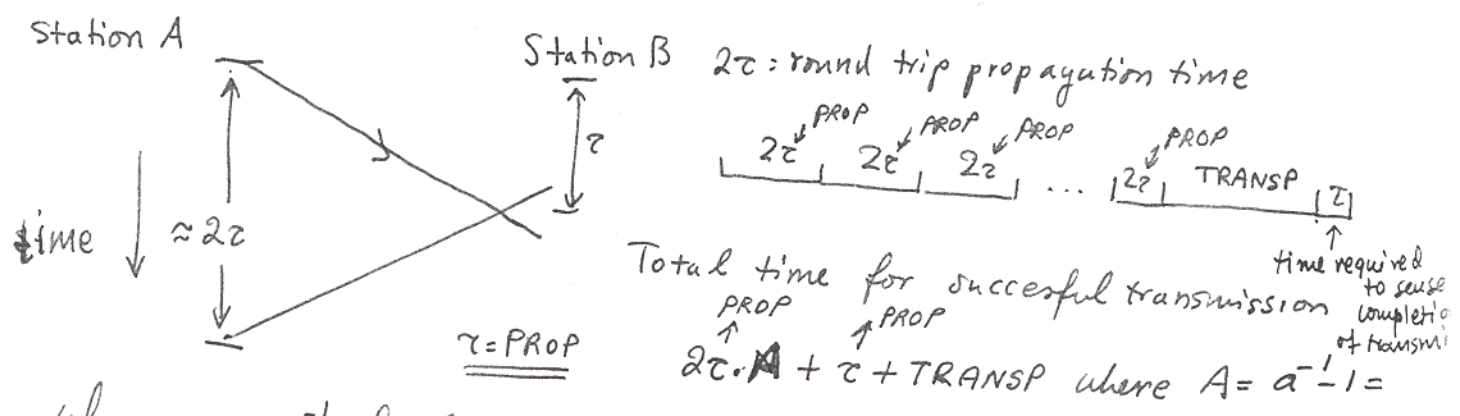 Station A
Station B
2τ : round trip propagation time
PROP PROP PROP PROP
2τ 2τ 2τ ... 2τ TRANSP τ
τ
time ↓ ≈ 2τ
time required
to sense
completio
of transmi
Total time for succesful transmission
PROP PROP
τ = PROP
2τ·A + τ + TRANSP where A = a⁻¹-1 =